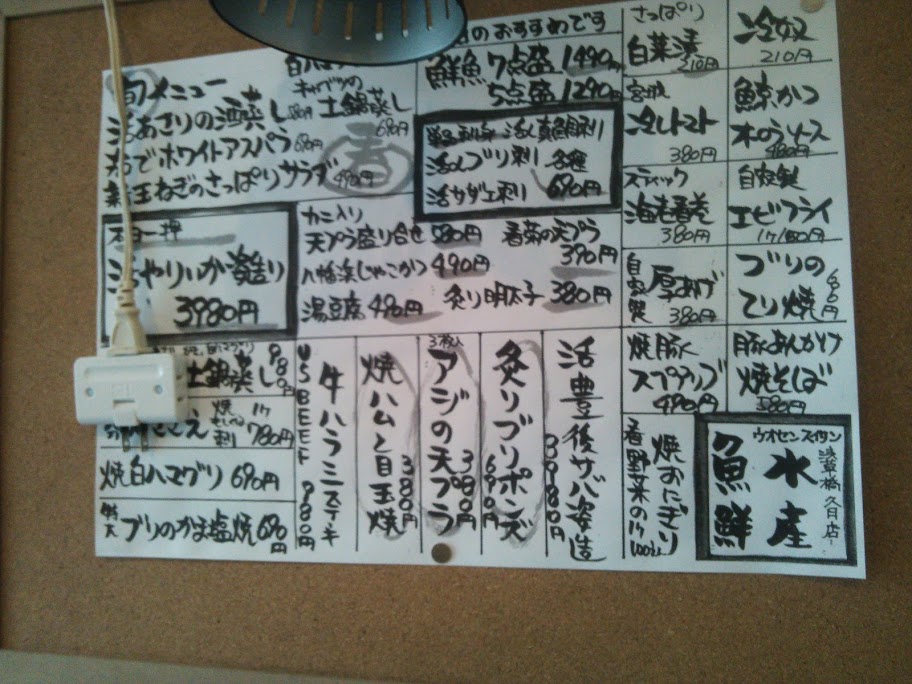 旬メニュー
活あさりの酒蒸し
ゆでホワイトアスパラ 680円
新玉ねぎのさっぱりサラダ 490円
キャベツの
土鍋蒸し
680円
春
のおすすめです
鮮魚7点盛 1490円
5点盛 1290円
活〆真鯛刺
活〆ブリ刺 各種
活サザエ刺 690円
一押
活やりいか姿造り
3980円
カニ入り
天プラ盛り合せ 580円
春菊の天プラ
390円
八幡浜じゃこかつ 490円
湯豆腐 490円
炙り明太子 380円
さっぱり
白菜漬
210円
冷奴
210円
冷しトマト
380円
鯨かつ
480円
スティック
海老春巻
380円
自家製
エビフライ
自家製
厚あげ
380円
ブリの
てり焼
焼豚
スプアリブ
490円
豚あんかけ
焼そば
580円
土鍋蒸し 980円
780円
焼白ハマグリ 690円
特大
ブリのかま塩焼 690円
US BEEF
牛ハラミステーキ 980円
焼ハムと目玉焼 380円
3枚入
アジの天プラ 380円
炙りブリポンズ 690円
活豊後サバ姿造 3980円
春野菜の
焼おにぎり
ウオセンスイサン
魚鮮
水産
浅草橋